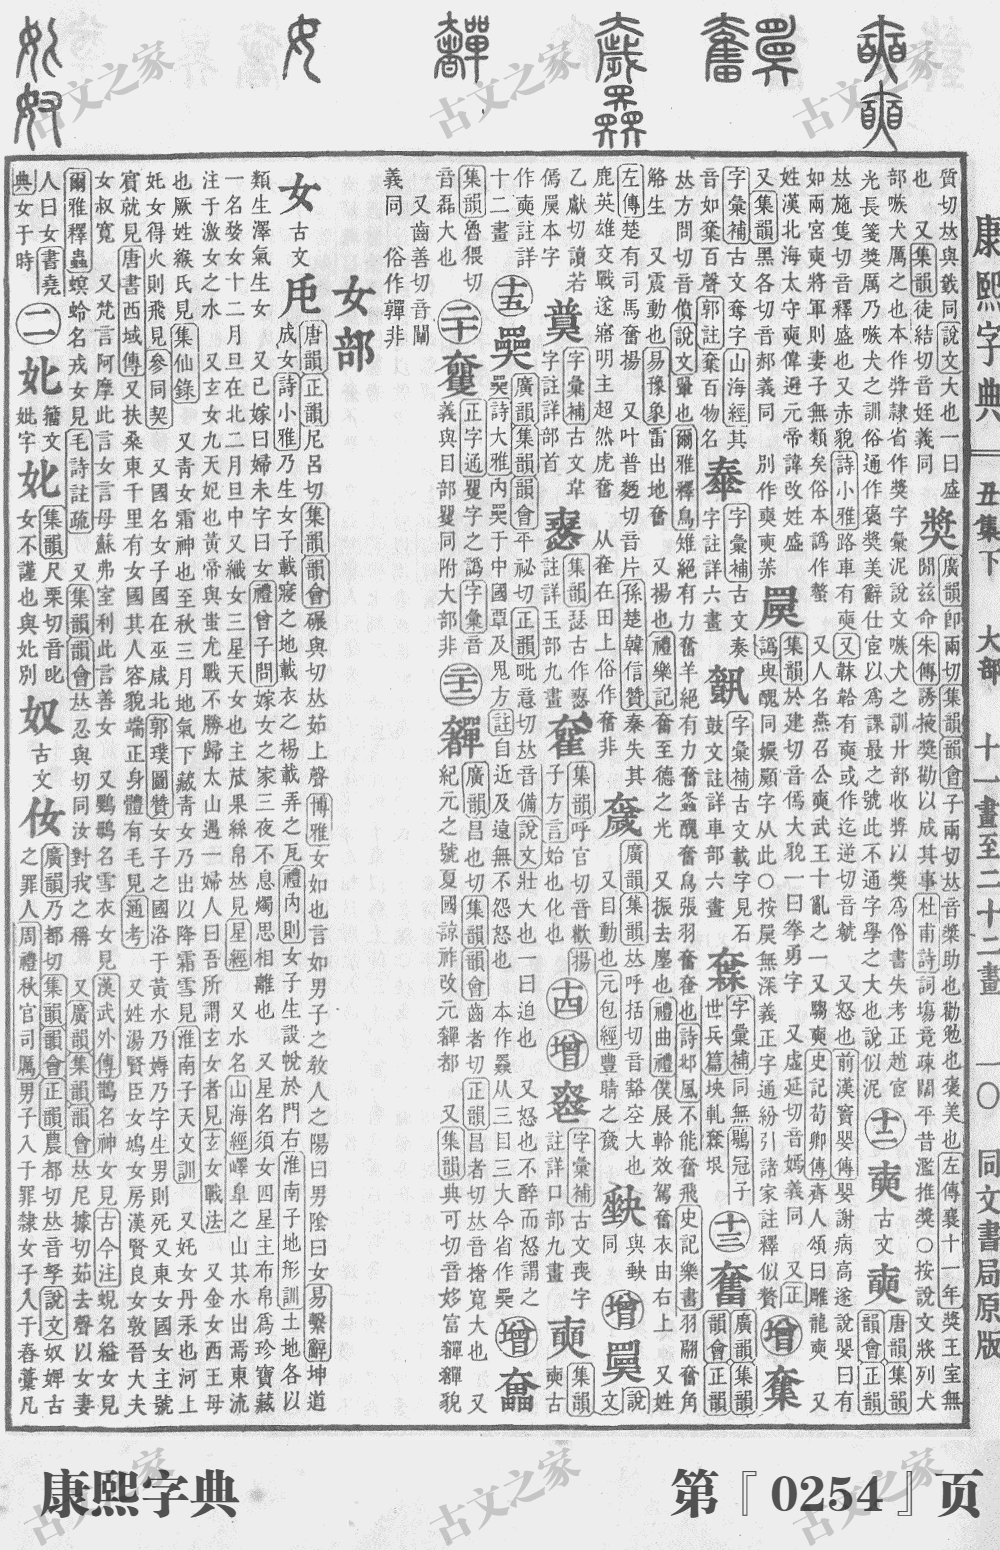 康熙字典
丑集下 大部 十一畫至二十二畫
一〇
同文書局原版
質切𠀤與同說文大也一曰盛
也 又集韻徒結切音姪義同
奬
廣韻卽兩切集韻韻會子兩切𠀤音槳助也勸勉也褒美也左傳襄十一年奬王室無
閒茲命朱傳誘掖奬勸以成其事杜甫詩詞場竟疎闊平昔濫推奬○按說文將列犬
部嗾犬厲之也本作㢡隷省作奬字彙泥說文嗾犬之訓廾部收㢡以奬爲俗書失考正趙宧
光長箋奬厲乃嗾犬之訓俗通作褒奬美辭仕宦以爲課最之號此不通字學之大也說似泥
十二
奭
古文
奭
唐韻集韻
韻會正韻
𠀤施隻切音釋盛也又赤貌詩小雅路車有奭又韎韐有奭或作迄逆切音虩 又怒也前漢竇嬰傳嬰謝病高遂說嬰曰有
如兩宮奭將軍則妻子無類矣俗本譌作螫 又人名燕召公奭武王十亂之一又騶奭史記荀卿傳齊人頌曰雕龍奭 又
姓漢北海太守奭偉避元帝諱改姓盛
又集韻黑各切音郝義同 別作
集韻於建切音傿大貌一曰拳勇字 又虛延切音嫣義同 又正
譌與醜同 字从此○按 無深義正字通紛引諸家註釋似贅
增
字彙補古文奪字山海經其
音如奪百聲郭註奪百物名
字彙補古文奏
字註詳六畫
字彙補古文載字見石
鼓文註詳車部六畫
字彙補同無鶡冠子
世兵篇坱軋 垠
十三
奮
廣韻集韻
韻會正韻
𠀤方問切音僨說文翬也爾雅釋鳥雉絕有力奮羊絕有力奮 醜奮鳥張羽奮奮也詩邶風不能奮飛史記樂書羽翮奮角
觡生 又震動也易豫象雷出地奮 又揚也禮樂記奮至德之光 又振去塵也禮曲禮僕展軨效駕奮衣由右上 又姓
左傳楚有司馬奮揚 又叶普麪切音片孫楚韓信贊秦失其
鹿英雄交戰遂寤明主超然虎奮 从奞在田上俗作奮非
廣韻集韻𠀤呼括切音豁空大也
又目動也元包經豐睛之
與 同
增
說文
乙獻切讀若
傿 本字
字彙補古文
字註詳部首
集韻 古作
註詳玉部九畫
集韻呼官切音歡揚
子方言始也化也
十四
增
字彙補古文喪字
註詳口部九畫
奭
集韻
奭古
作奭註詳
十二畫
十五
廣韻集韻韻會平祕切正韻毗意切𠀤音備說文壯大也一曰迫也 又怒也不醉而怒謂之
詩大雅內奰于中國覃及鬼方註自近及遠無不怨怒也 本作 从三目三大今省作奰
增
集韻魯猥切
音磊大也
二十
正字通 字之譌字彙音
義與目部 同附大部非
二十二
奲
廣韻昌也切集韻韻會齒者切正韻昌者切𠀤音撦寬大也 又
紀元之號夏國諒祚改元奲都 又集韻典可切音 富奲奲貌
又齒善切音闡
義同 俗作 非
女部
女
古文
唐韻正韻尼呂切集韻韻會碾與切𠀤茹上聲博雅女如也言如男子之教人之陽曰男陰曰女易繫辭坤道
成女詩小雅乃生女子載寢之地載衣之裼載弄之瓦禮內則女子生設帨於門右淮南子地形訓土地各以
類生澤氣生女 又已嫁曰婦未字曰女禮曾子問嫁女之家三夜不息燭思相離也 又星名須女四星主布帛爲珍寶藏
一名婺女十二月旦在北二月旦中又織女三星天女也主苽果絲帛𠀤見星經 又水名山海經嶧皐之山其水出焉東流
注于激女之水 又玄女九天妃也黃帝與蚩尤戰不勝歸太山遇一婦人曰吾所謂玄女者見玄女戰法 又金女西王母
也厥姓緱氏見集仙錄 又靑女霜神也至秋三月地氣下藏靑女乃出以降霜雪見淮南子天文訓 又奼女丹汞也河上
奼女得火則飛見參同契 又國名女子國在巫咸北郭璞圖贊女子之國浴于黃水乃娠乃字生男則死又東女國女主號
賓就見唐書西域傳又扶桑東千里有女國其人容貌端正身體有毛見通考 又姓湯賢臣女鳩女房漢賢良女敦晉大夫
女叔寬 又梵言阿摩此言女言母蘇弗室利此言善女 又鸚鵡名雪衣女見漢武外傳鵲名神女見古今注蜆名縊女見
爾雅釋蟲螟蛉名戎女見毛詩註疏 又集韻韻會𠀤忍與切同汝對我之稱 又廣韻集韻韻會𠀤尼據切茹去聲以女妻
人曰女書堯
典女于時
二
籀文
妣字
集韻尺栗切音叱
女不謹也也與妣別
奴
古文
㚢
廣韻乃都切集韻韻會正韻農都切𠀤音孥說文奴婢古
之罪人周禮秋官司厲男子入于罪隷女子入于舂藁凡
康熙字典
第『0254』页
古文之家